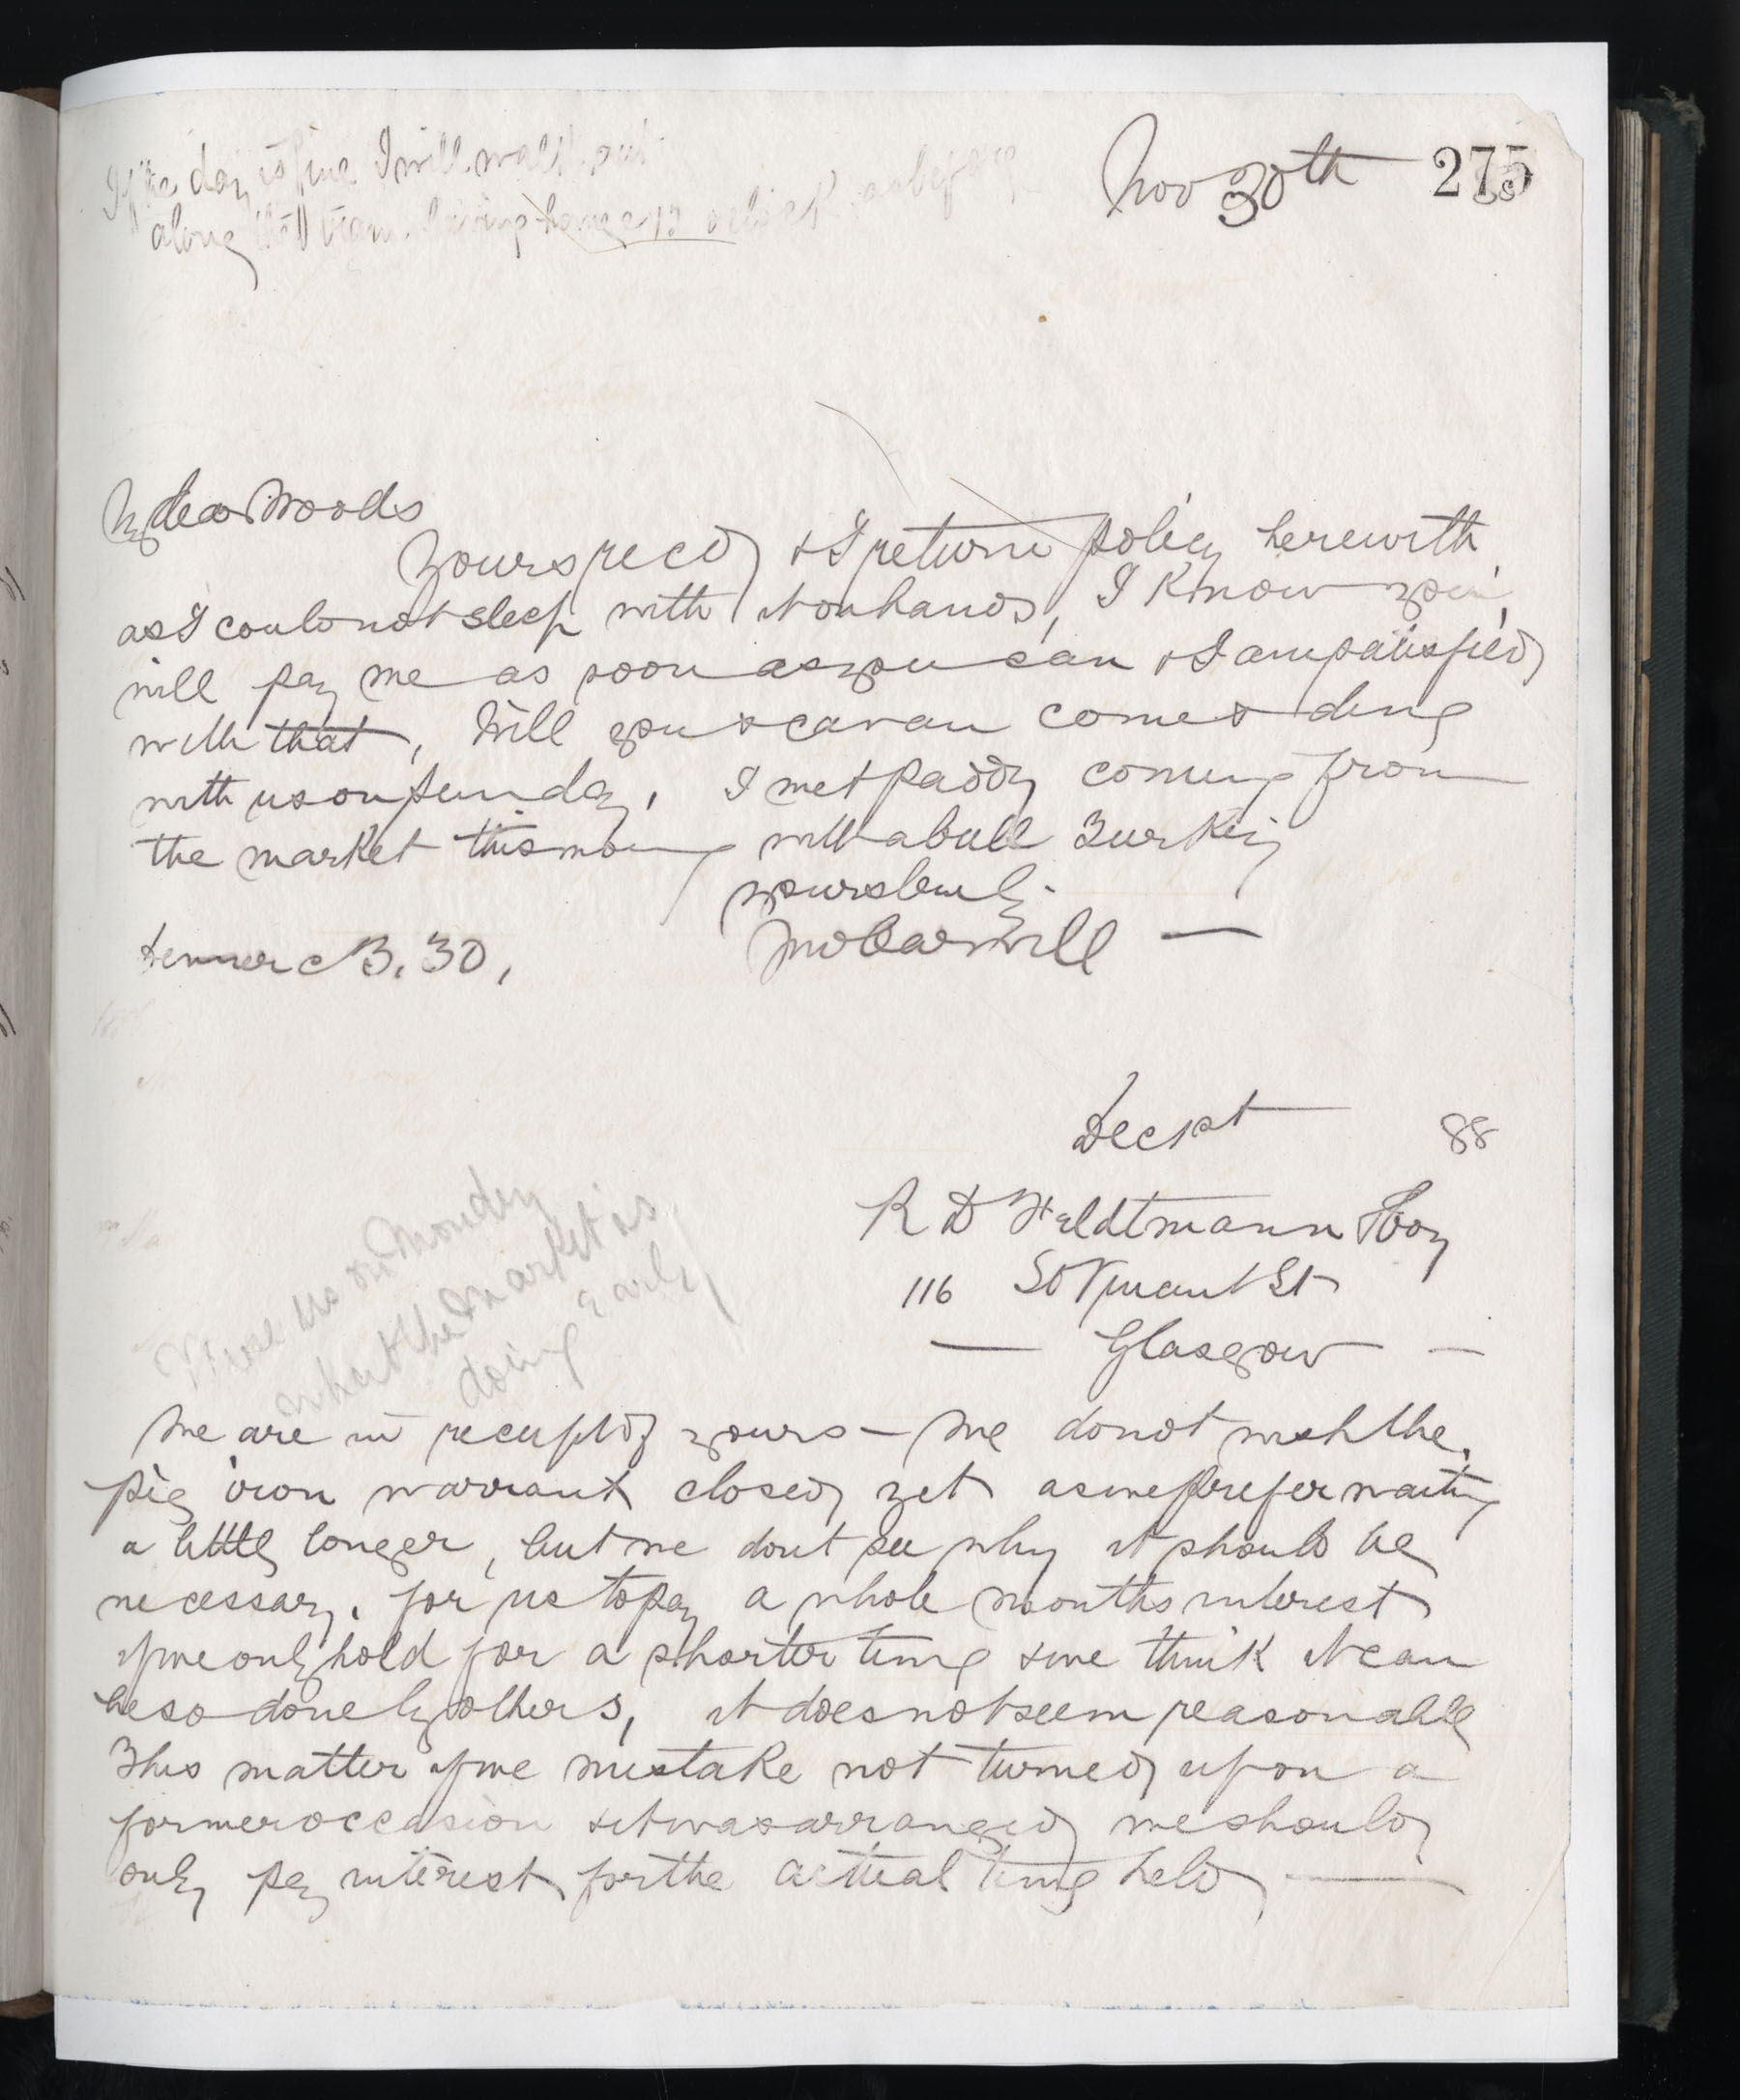 If the day is fine I will walk out
along the
Nov 30th 275
My dear Woods
Yours recd & I return policy herewith
as I could not sleep with it on hands, I know you
will pay me as soon as you can & I am satisfied
with that, Will you & Cavan come & dine
with us on Sunday. I met Paddy coming from
the market this morning with a bull Turkey
yours truly
Dinner 3.30,
Dec 1st 88
R D Feldtmann Esq
116 St Vincent St
Glasgow
Wire us on Monday
what the market is
doing early
We are in receipt of yours – We do not wish the
pig iron warrants closed yet as we prefer waiting
a little longer, but we dont see why it should be
necessary for us to pay a whole months interest
if we only hold for a shorter time & we think it can
be so done by others, it does not seem reasonable
This matter if we mistake not turned upon a
former occasion & it was arranged we should
only pay interest for the actual time held